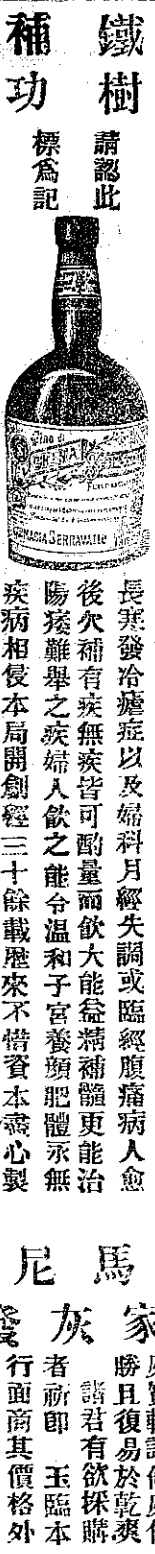 鐵樹
補功
請認此
標爲記
Vino di
CHINA
FARMACIA SERRAVALLO
長寒發冷瘧症以及婦科月經失調或臨經腹痛病人愈
後欠補有疾無疾皆可酌量而飲大能益精補髓更能治
陽痿難舉之疾婦人飲之能令温和子宮養顏肥體永無
疾病相侵本局開創經三十餘載歷來不惜資本盡心製
馬
尼
家
灰
勝且復易於乾爽
諸君有欲採購
者祈即 玉臨本
行面商其價格外